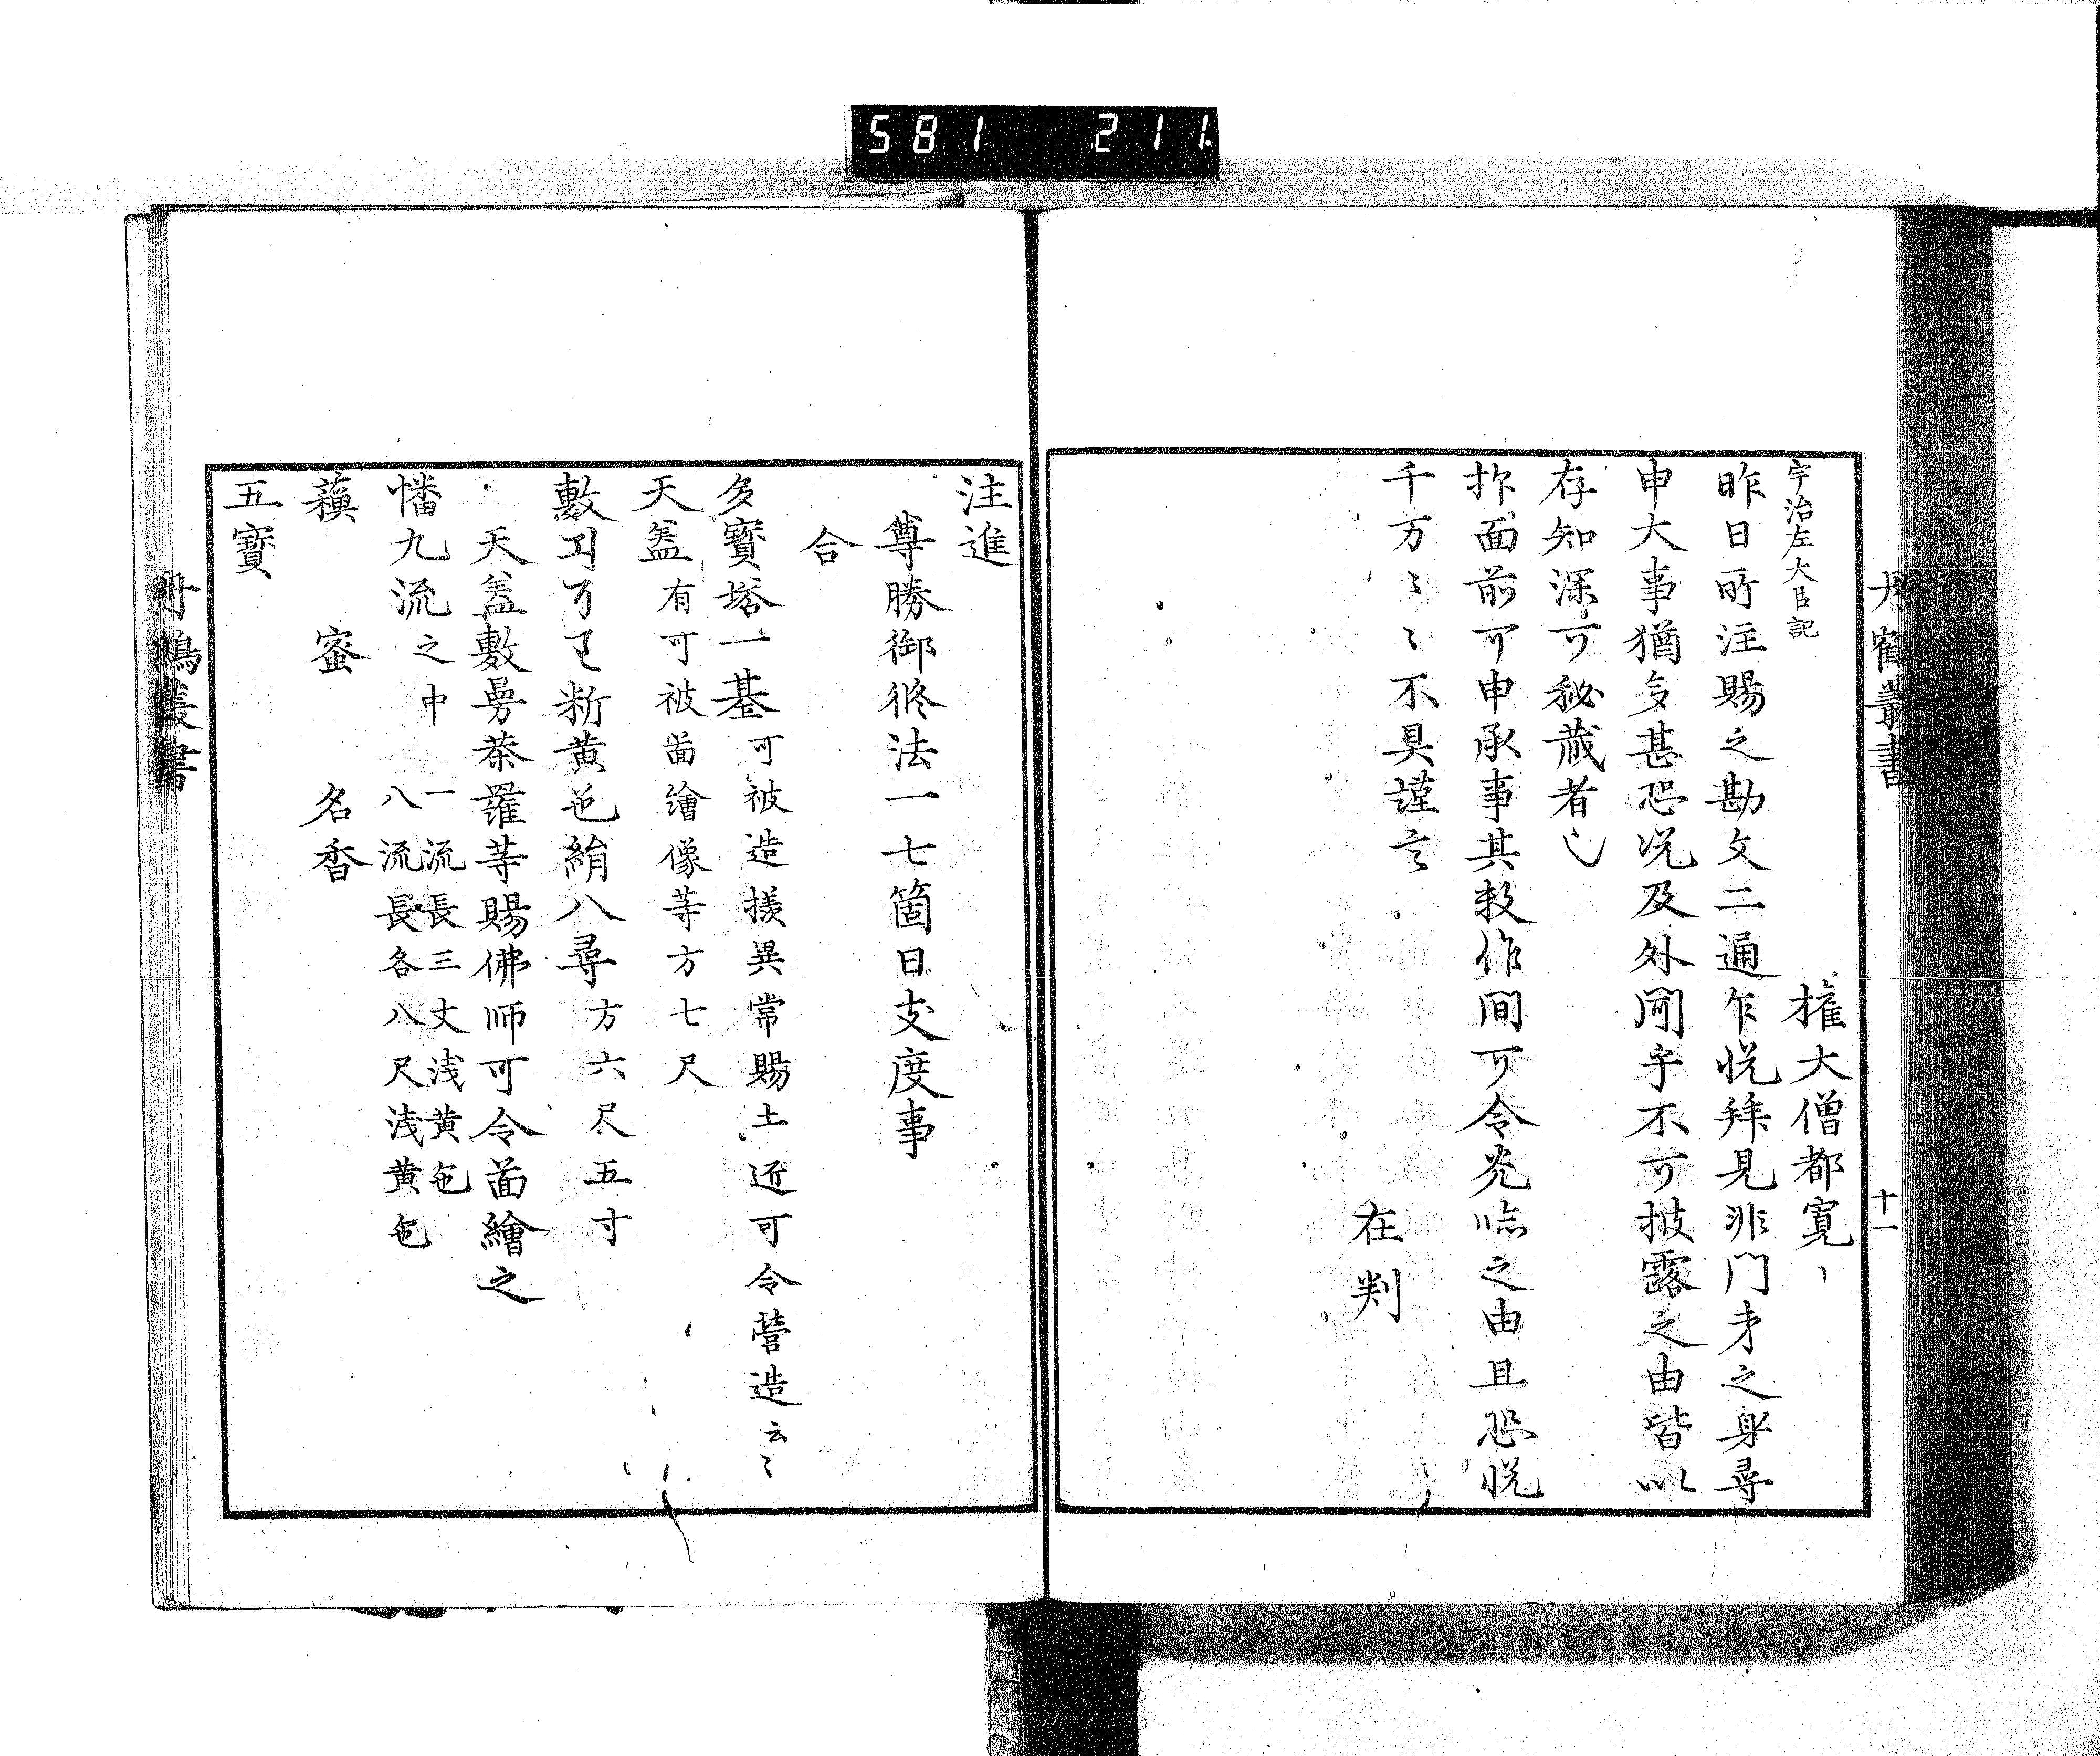 581 211
丹鶴叢書 十一
権大僧都寛〻
宇治左大臣記
昨日所注賜之勘文二通乍悦拝見非門弟之身尋
申大事猶多甚恐况及外聞乎不可披露之由皆以
存知深可秘蔵者也
抑面前可申承事其数作間可令光臨之由且恐悦
千万〻〻不具謹言
在判
注進
尊勝御修法一七箇日支度事
合
多寶塔一基可被造様異常賜土近可令營造云〻
天盖有可被啚繪像等方七尺
敷 断黄色絹八尋方六尺五寸
天盖敷曼荼羅等賜佛師可令啚繪之
幡九流之中一流長三丈浅黄色
八流長各八尺浅黄色
蘓 蜜 名香
五寳
丹鶴叢書